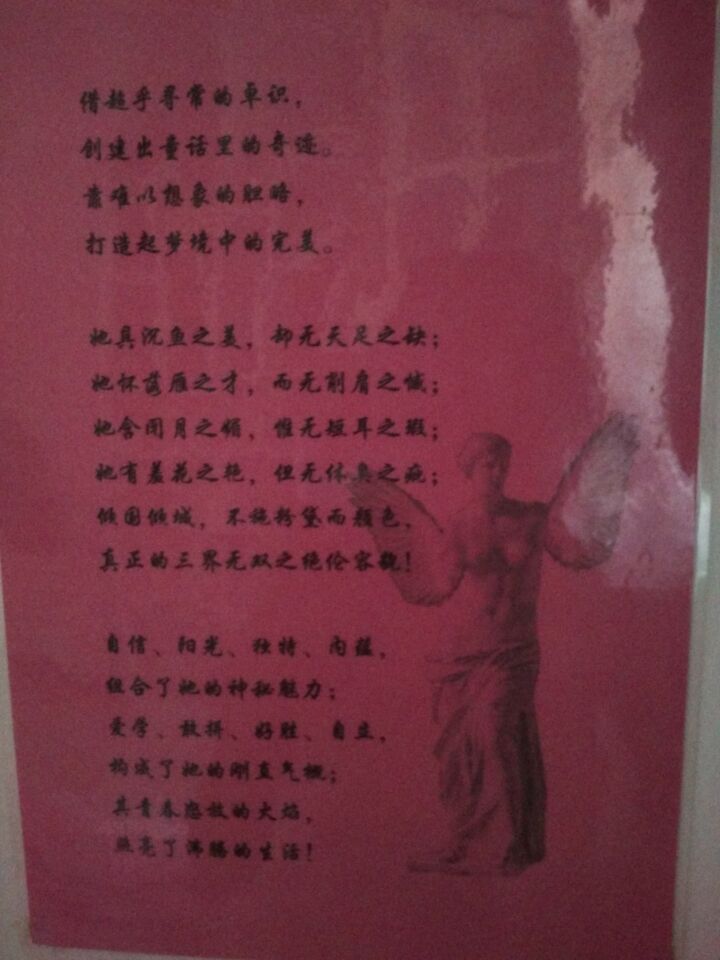 借超乎寻常的卓识，
创建出童话里的奇迹。
靠难以想象的胆略，
打造起梦境中的完美。
她具沉鱼之美，却无天足之缺；
她怀落雁之才，而无削肩之憾；
她含闭月之媚，惟无短耳之瑕；
她有羞花之艳，但无体臭之疵；
倾国倾城，不施粉黛而颜色，
真正的三界无双之绝伦容貌！
自信、阳光、独特、内蕴，
组合了她的神秘魅力；
爱学、敢拼、好胜、自立，
构成了她的刚直气概；
其青春怒放的火焰，
照亮了沸腾的生活！